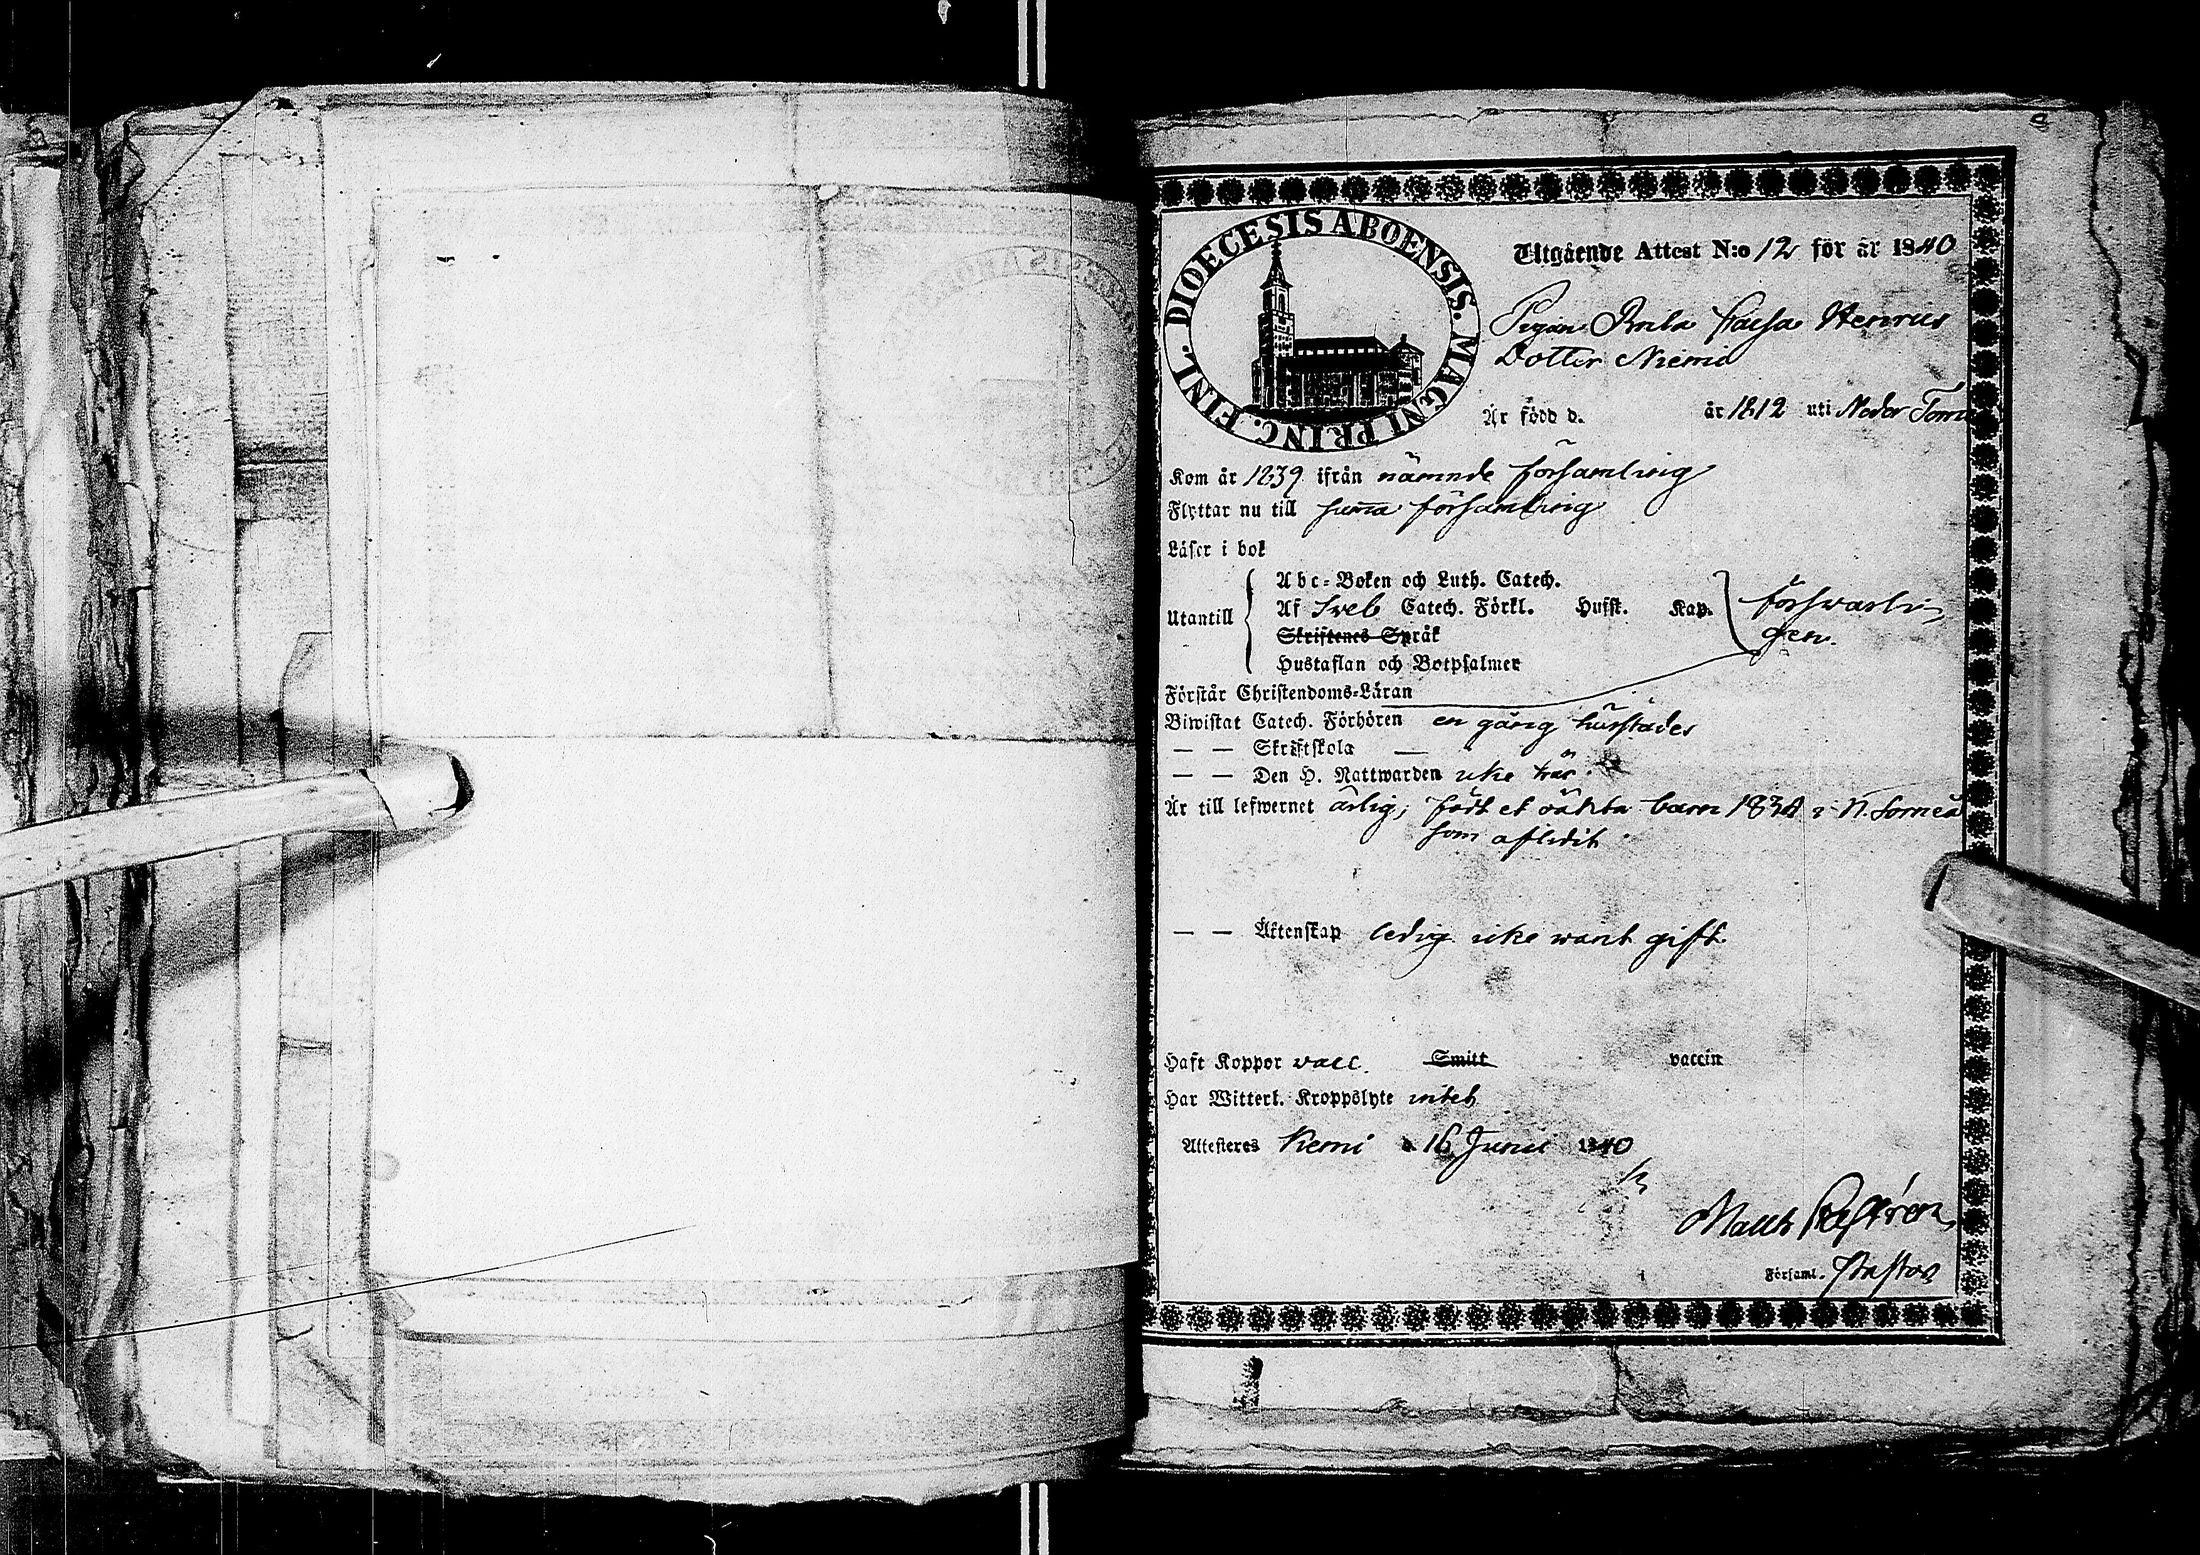 DIOECESIS ABOENSIS. MAGNI PRINC. FINL.
Utgående Attest N:o 12 för år 1840
Pigan Brita Caisa Henrics
Dotter Niemi
Är född d. år 1812 uti Neder Torne
Kom år 1839 ifrån nämnde församling
Flyttar nu till samma församling
Läser i bok
Utantill
Abc-Boken och Luth. Catech.
Af Sveb Catech. Förkl. Husst. Kap.
Skriftenes Språk
Hustaflan och Botpsalmer
försvarli-
gen.
Förstår Christendoms-Läran
Biwistat Catech. Förhören en gång härstädes
— — Skriftskola —
— — Den H. Nattwarden icke här.
Är till lefwernet ärlig, födt et oäkta barn 1834 i N. Torneå
som aflidit.
— — Äktenskap ledig icke warit gift.
Haft Koppor vacc. Smitt vaccin
Har Witterl. Kroppslyte intet
Attesteras Kemi d. 16 Junii 1840
Matth Castrén
Församl. Pastor